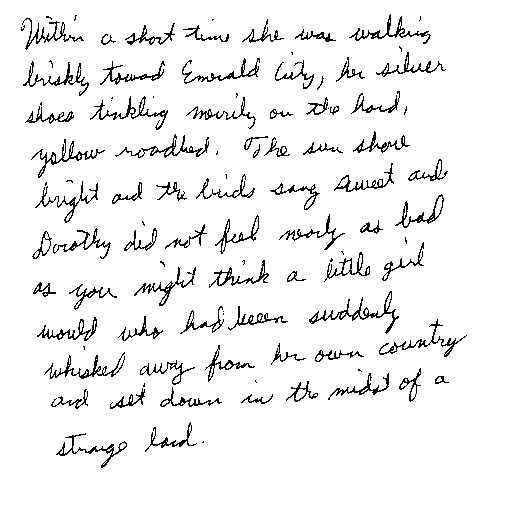 Within a short time she was walking
briskly toward Emerald City, her silver
shoes tinkling merrily on the hard,
yellow roadbed. The sun shone
bright and the birds sang sweet and
Dorothy did not feel nearly as bad
as you might think a little girl
would who had been suddenly
whisked away from her own country
and set down in the midst of a
strange land.